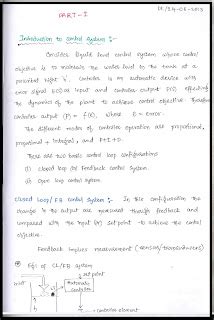 PART-I
Introduction to control systems :-
Consider liquid level control system whose control
objective is to maintain the water level in the tank at a
prescribed height 'h'. Controller is an automatic device with
error signal E(s) as input and controller output P(s) affecting
the dynamics of the plant to achieve control objective therefore
controller output (P) = f(E), where E = Error.
The different modes of controller operation are proportional,
proportional + integral, and P+I+D.
There are two basic control loop configurations
(i) Closed loop (or) Feedback control system.
(ii) Open loop control system
Closed Loop/FB control system :- In this configuration the
changes in the output are measured through feedback and
compared with the input (or) set-point to achieve the control
objective.
Feedback implies measurement (sensors/transducers)
Eg: of CL/FB system
set point
inlet
Automatic
controller
h
control element